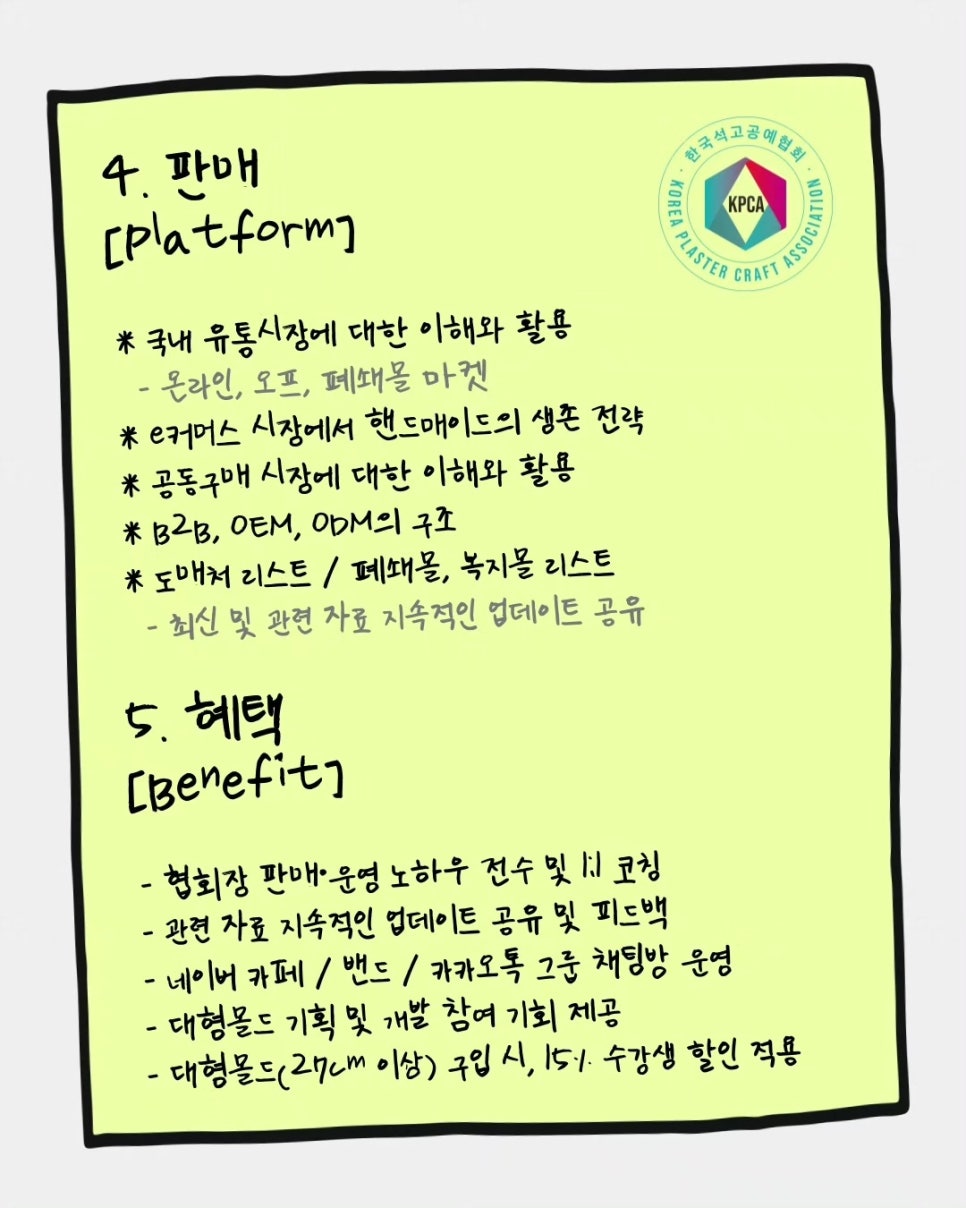 4. 판매
[Platform]
· 한국석고공예협회 ·
KOREA PLASTER CRAFT ASSOCIATION
KPCA
* 국내 유통시장에 대한 이해와 활용
- 온라인, 오프, 폐쇄몰 마켓
* e커머스 시장에서 핸드메이드의 생존 전략
* 공동구매 시장에 대한 이해와 활용
* B2B, OEM, ODM의 구조
* 도매처 리스트 / 폐쇄몰, 복지몰 리스트
- 최신 및 관련 자료 지속적인 업데이트 공유
5. 혜택
[Benefit]
- 협회장 판매·운영 노하우 전수 및 1:1 코칭
- 관련 자료 지속적인 업데이트 공유 및 피드백
- 네이버 카페 / 밴드 / 카카오톡 그룹 채팅방 운영
- 대형몰드 기획 및 개발 참여 기회 제공
- 대형몰드(27cm 이상) 구입 시, 15% 수강생 할인 적용